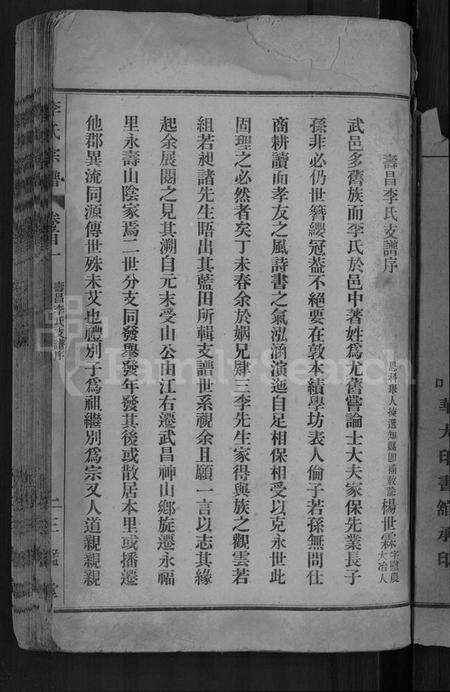 壽昌李氏支譜序
楊世霖
武邑多舊族而李氏於邑中著姓為尤舊嘗論士大夫家保先業長子
孫非必仍世簪纓冠葢不絕要在敦本績學坊表人倫子若孫無問仕
商耕讀而孝友之風詩書之氣泓涵演迤自足相保相受以克永世此
固理之必然者矣丁未春余於姻兄肆三李先生家得與族之觀雲若
組若昶諸先生晤出其藍田所輯支譜世系視余且願一言以志其緣
起余展閱之見其溯自元末受山公由江右遷武昌神山鄉旋遷永福
里永壽山陰家焉二世分支同發舉發年發其後或散居本里或播遷
他郡異流同源傳世殊未艾也禮別子為祖繼別為宗又人道親親親
李氏宗譜
卷首一
壽昌李氏支譜序
華大印書館承印
FamilySearch